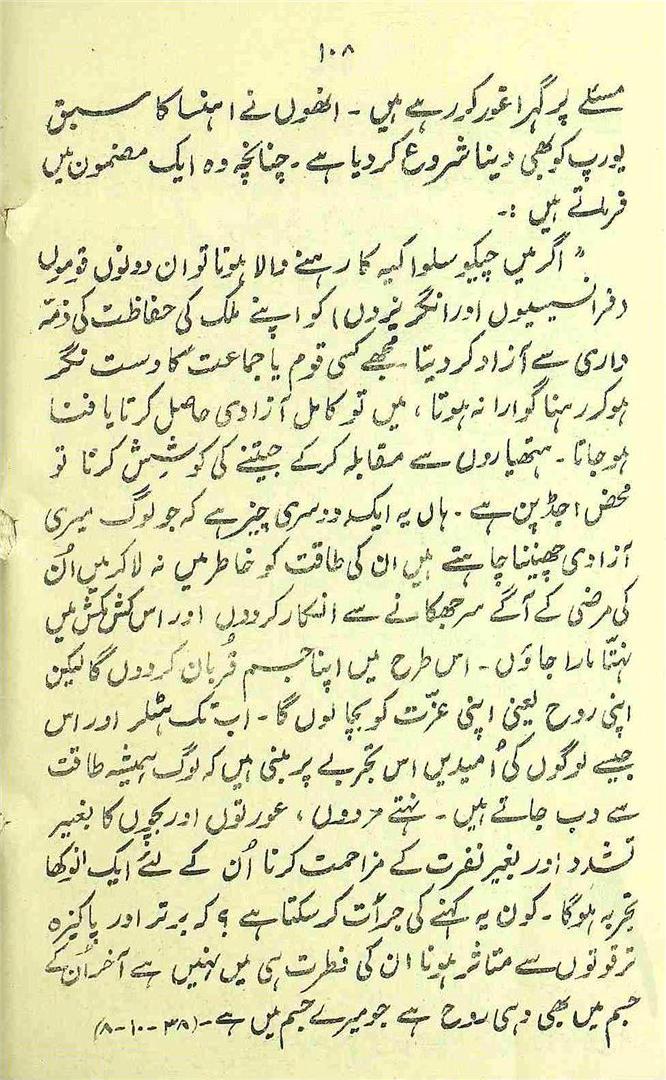 ۱۰۸
مسئلے پر گہرا غور کر رہے ہیں ۔ انھوں نے اہنسا کا سبق
یورپ کو بھی دینا شروع کر دیا ہے ۔ چنانچہ وہ ایک مضمون میں
فرماتے ہیں :۔
" اگر میں چیکو سلواکیہ کا رہنے والا ہوتا تو ان دونوں قوموں
(فرانسیسیوں اور انگریزوں) کو اپنے ملک کی حفاظت کی ذمّہ
داری سے آزاد کر دیتا ۔ مجھے کسی قوم یا جماعت کا دست نگر
ہو کر رہنا گوارا نہ ہوتا ، میں تو کامل آزادی حاصل کرتا یا فنا
ہو جاتا ۔ ہتھیاروں سے مقابلہ کر کے جیتنے کی کوشش کرنا تو
محض اجڈپن ہے ۔ ہاں یہ ایک دوسری چیز ہے کہ جو لوگ میری
آزادی چھیننا چاہتے ہیں ان کی طاقت کو خاطر میں نہ لا کر میں اُن
کی مرضی کے آگے سر جھکانے سے انکار کر دوں اور اس کش مکش میں
نہتّا مارا جاؤں ۔ اس طرح میں اپنا جسم قُربان کر دوں گا لیکن
اپنی روح یعنی اپنی عزّت کو بچا لوں گا ۔ اب تک ہٹلر اور اس
جیسے لوگوں کی اُمیدیں اس تجربے پر مبنی ہیں کہ لوگ ہمیشہ طاقت
سے دب جاتے ہیں ۔ نہتے مردوں ، عورتوں اور بچوں کا بغیر
تشدد اور بغیر نفرت کے مزاحمت کرنا اُن کے لئے ایک انوکھا
تجربہ ہوگا ۔ کون یہ کہنے کی جرأت کر سکتا ہے ؟ کہ برتر اور پاکیزہ
تر قوتوں سے متاثر ہونا ان کی فطرت ہی میں نہیں ہے آخر اُن کے
جسم میں بھی وہی روح ہے جو میرے جسم میں ہے ۔ (۳۸-۱۰-۸)